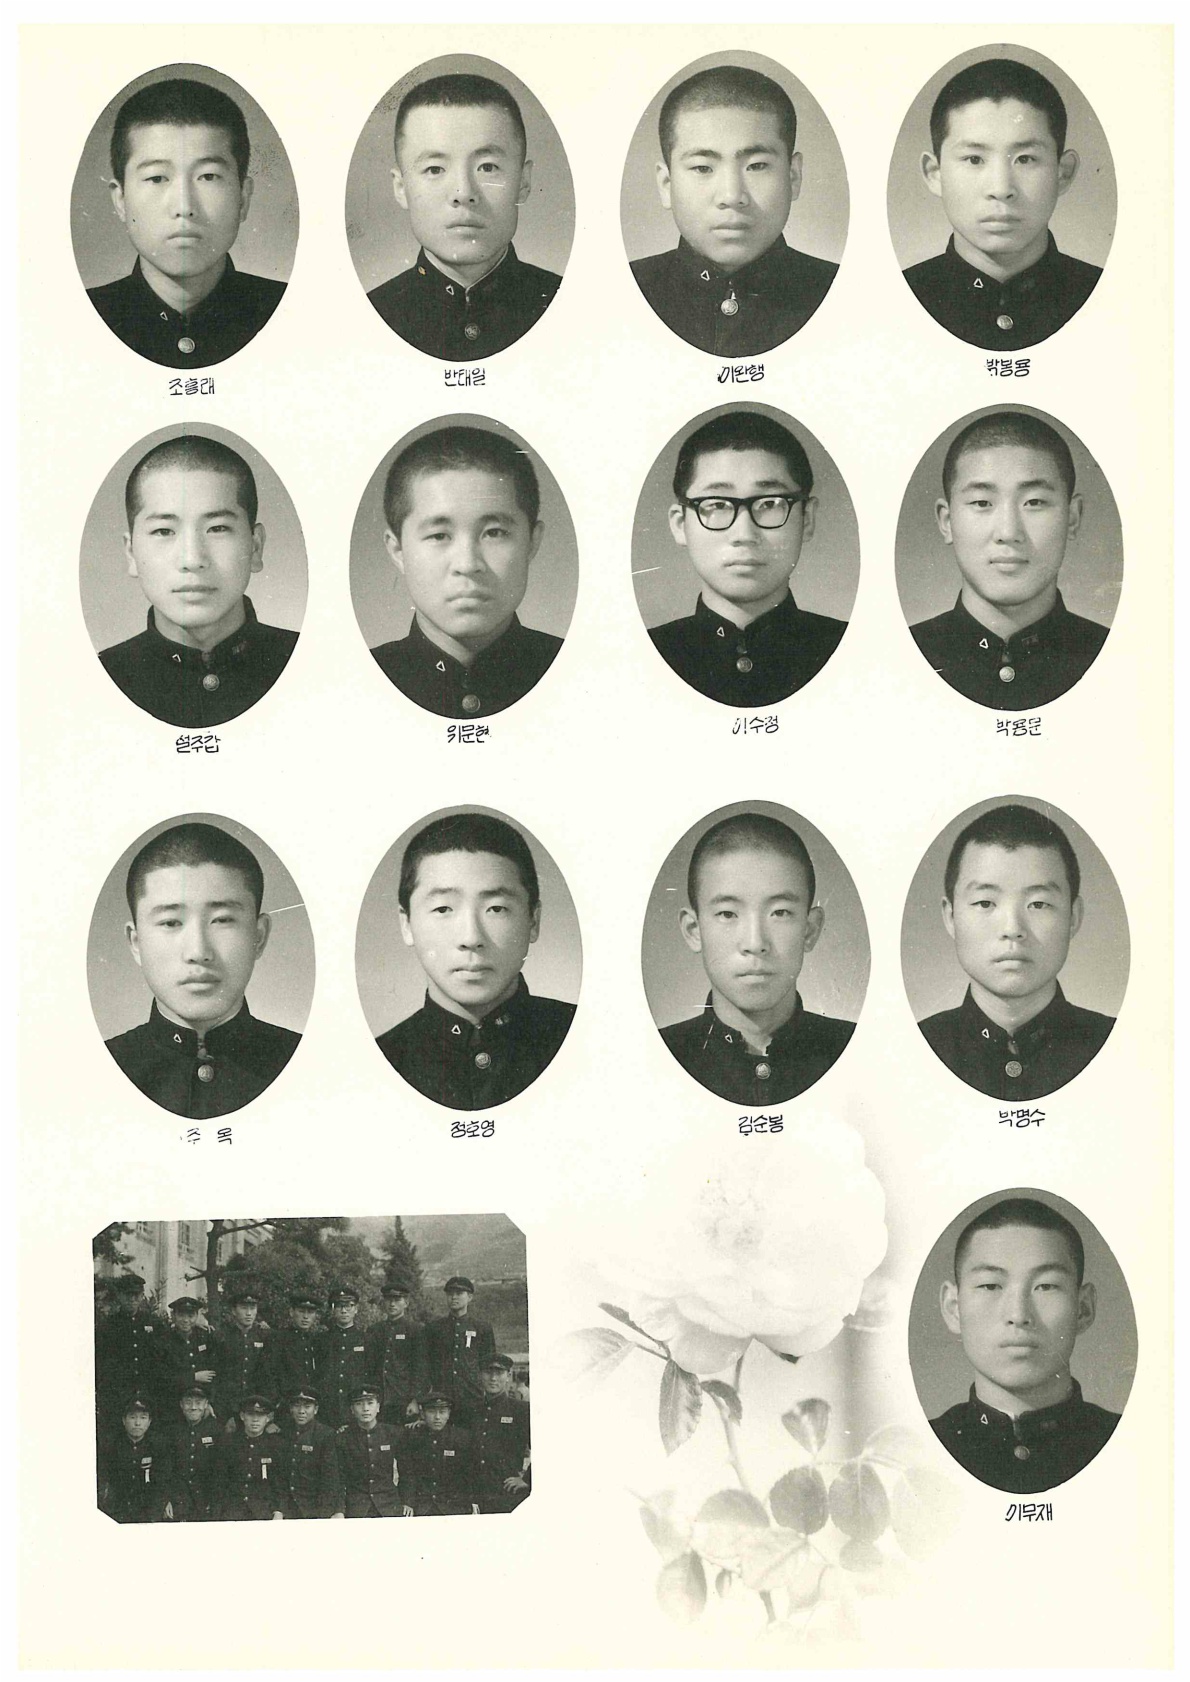 조흥래
반태일
이완행
박봉용
설주갑
위문현
이수정
박용문
주 옥
정호영
김순봉
박명수
이무재